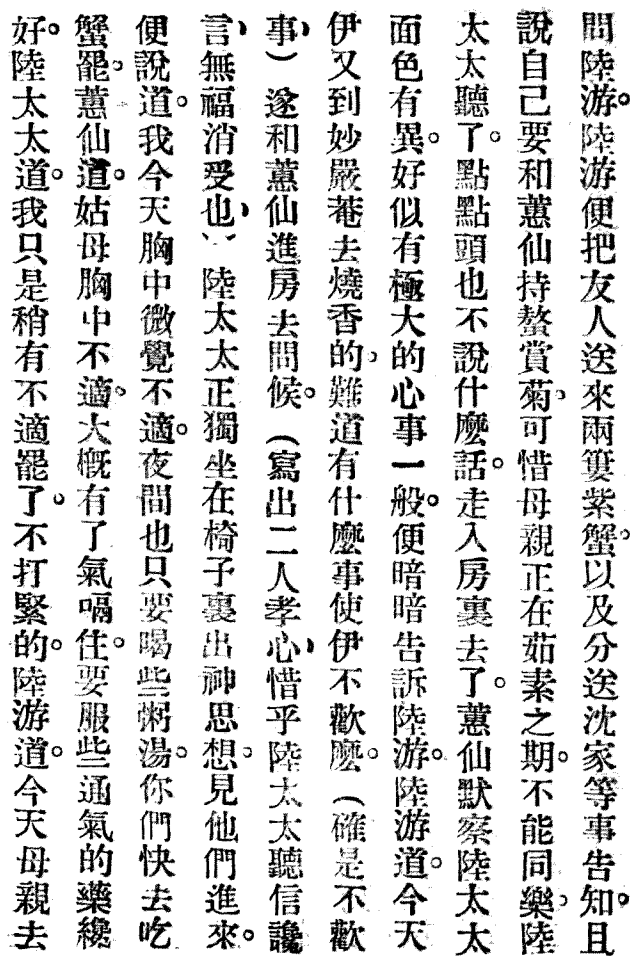 問陸游。陸游便把友人送來兩簍紫蟹。以及分送沈家等事告知。且
說自己要和蕙仙持螯賞菊。可惜母親正在茹素之期。不能同樂。陸
太太聽了。點點頭也不說什麼話。走入房裏去了。蕙仙默察陸太太
面色有異。好似有極大的心事一般。便暗暗告訴陸游。陸游道。今天
伊又到妙嚴菴去燒香的。難道有什麼事使伊不歡麼。（確是不歡
事）遂和蕙仙進房去問候。（寫出二人孝心、惜乎陸太太聽信讒
言、無福消受也、）陸太太正獨坐在椅子裏出神思想。見他們進來。
便說道。我今天胸中微覺不適。夜間也只要喝些粥湯。你們快去吃
蟹罷。蕙仙道。姑母胸中不適。大槪有了氣嗝住。要服些通氣的藥纔
好。陸太太道。我只是稍有不適罷了。不打緊的。陸游道。今天母親去